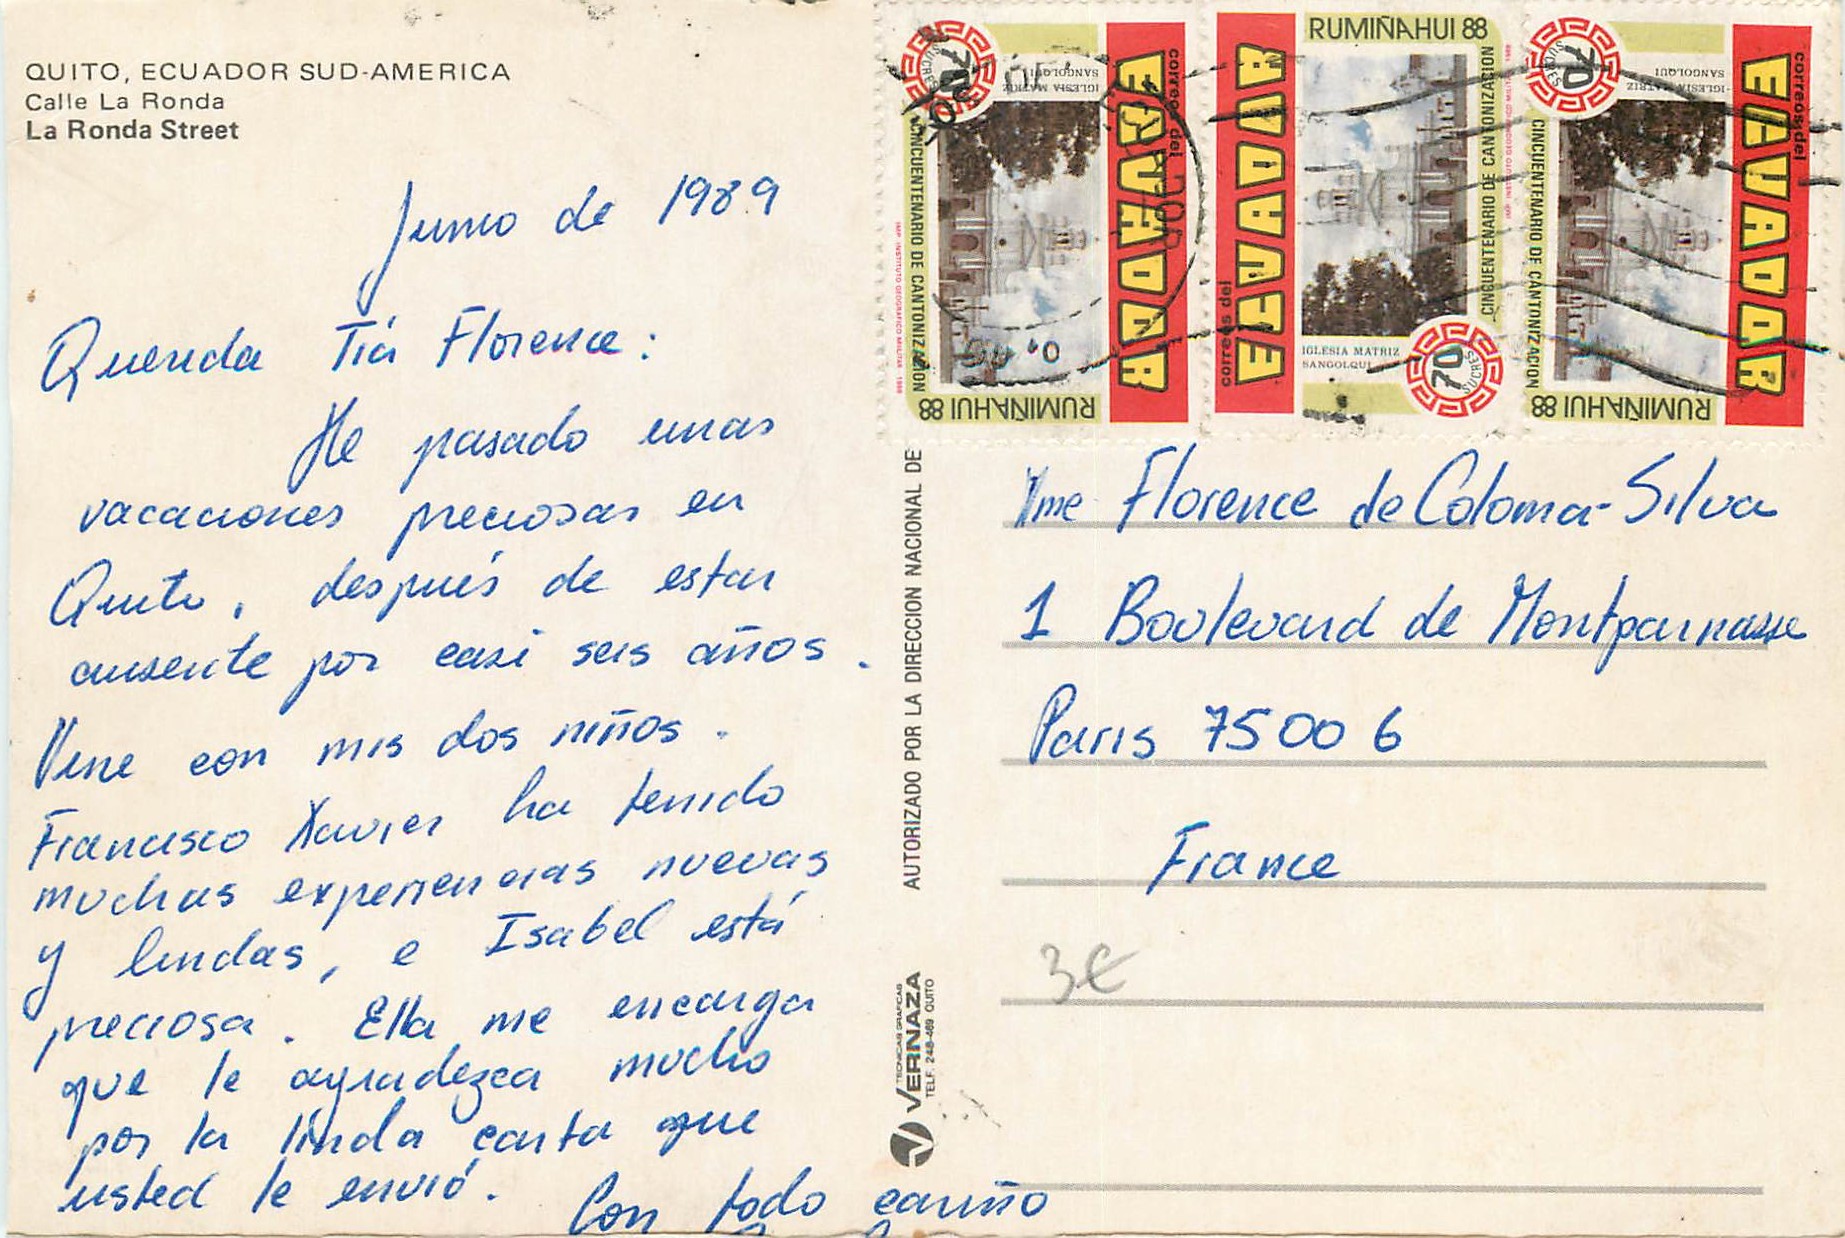 QUITO, ECUADOR SUD-AMERICA
Calle La Ronda
La Ronda Street
Junio de 1989
Querida Tiá Florence:
He pasado unas
vacaciones preciosas en
Quito, después de estar
ausente por casi seis años.
Vine con mis dos niños.
Francisco Xavier ha tenido
muchas experiencias nuevas
y lindas, e Isabel está
preciosa. Ella me encarga
que le agradezca mucho
por la linda carta que
usted le envió.
Con todo cariño
AUTORIZADO POR LA DIRECCION NACIONAL DE
TECNICAS GRAFICAS
VERNAZA
TELF. 248-469 QUITO
correos del
ECUADOR
RUMIÑAHUI 88
CINCUENTENARIO DE CANTONIZACION
IGLESIA MATRIZ
SANGOLQUI
70
SUCRES
IMP. INSTITUTO GEOGRAFICO MILITAR 1988
correos del
ECUADOR
RUMIÑAHUI 88
CINCUENTENARIO DE CANTONIZACION
IGLESIA MATRIZ
SANGOLQUI
70
SUCRES
correos del
ECUADOR
RUMIÑAHUI 88
CINCUENTENARIO DE CANTONIZACION
IGLESIA MATRIZ
SANGOLQUI
70
SUCRES
Mme Florence de Coloma-Silva
1 Boulevard de Montparnasse
Paris 75006
France
3€